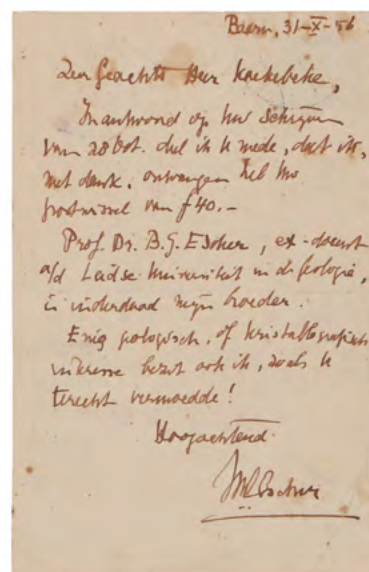 Baarn, 31-X-56
Zeer Geachte Heer Koekebeke,
In antwoord op Uw schrijven
van 28 Oct. deel ik U mede, dat ik,
met dank, ontvangen heb Uw
postwissel van f 40.-
Prof. Dr. B.G. Escher, ex-docent
a/d Leidse Universiteit in de geologie,
is inderdaad mijn broeder.
Enig geologisch, of kristallografisch
interesse bezit ook ik, zoals U
terecht vermoedde!
Hoogachtend
MCEscher